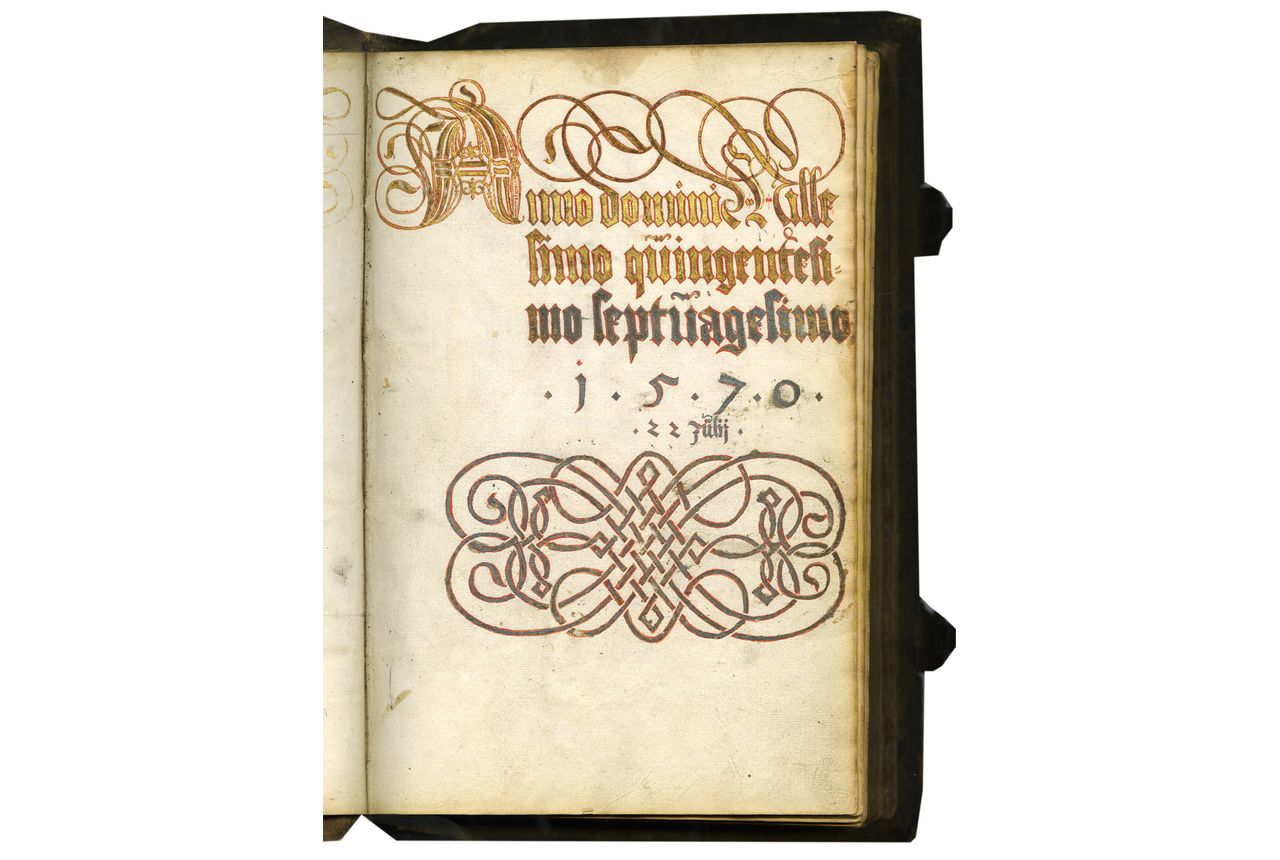 Anno domini Mille
simo quingentesi-
mo septuagesimo
· 1 · 5 · 7 · 0 ·
· 22 Julij ·